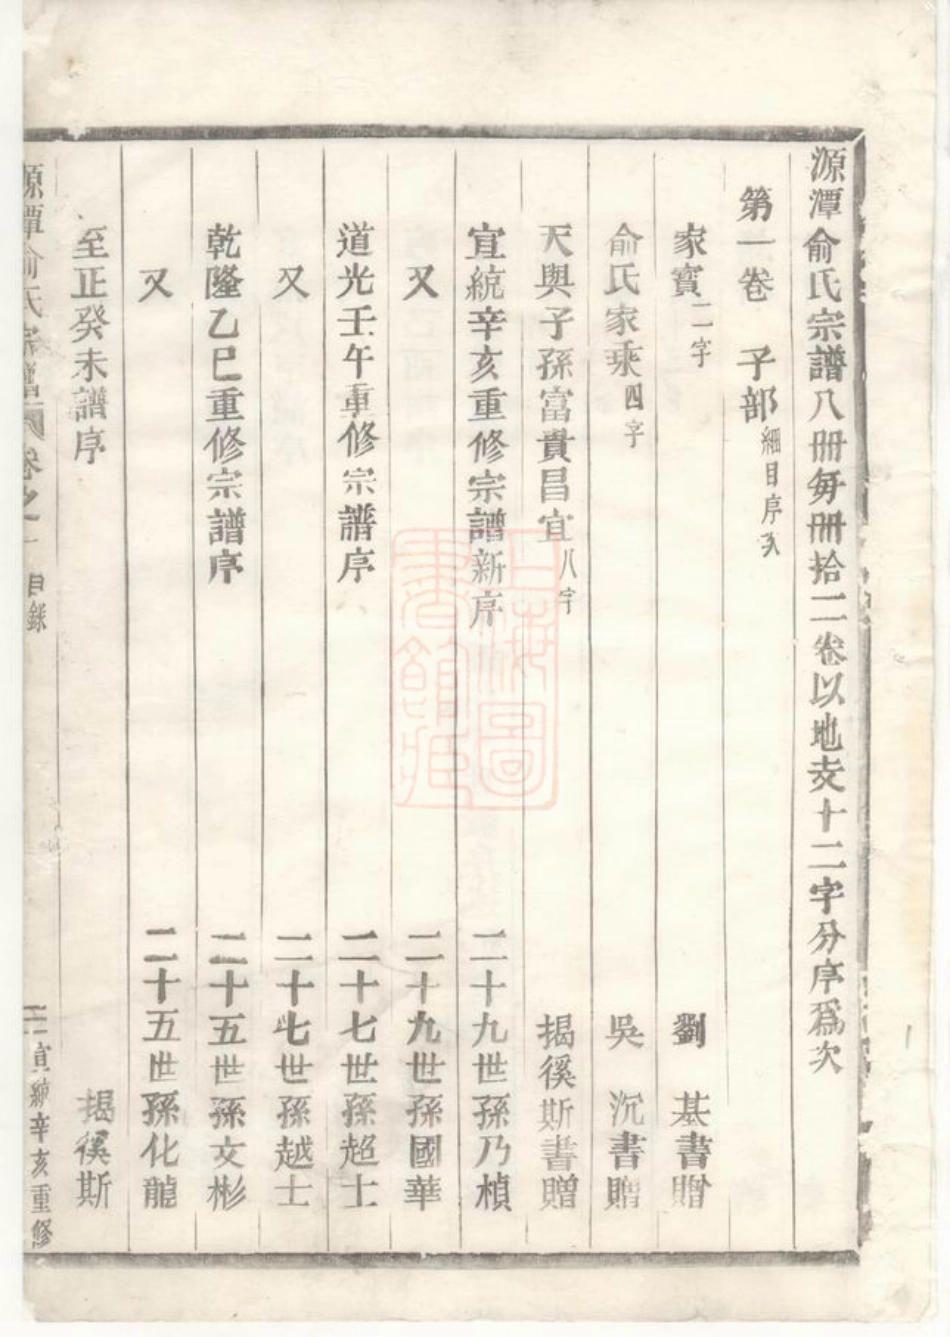 源潭俞氏宗譜八冊每冊拾二卷以地支十二字分序爲次
第一卷 子部 細目序次
家寶 二字 劉基書贈
俞氏家乘 四字 吳沉書贈
天與子孫富貴昌宜 八字 揭徯斯書贈
宣統辛亥重修宗譜新序 二十九世孫乃楨
又 二十九世孫國華
道光壬午重修宗譜序 二十七世孫超士
又 二十七世孫越士
乾隆乙巳重修宗譜序 二十五世孫文彬
又 二十五世孫化龍
至正癸未譜序 揭徯斯
源潭俞氏宗譜 卷之一 目錄 宣統辛亥重修
上海圖書館藏